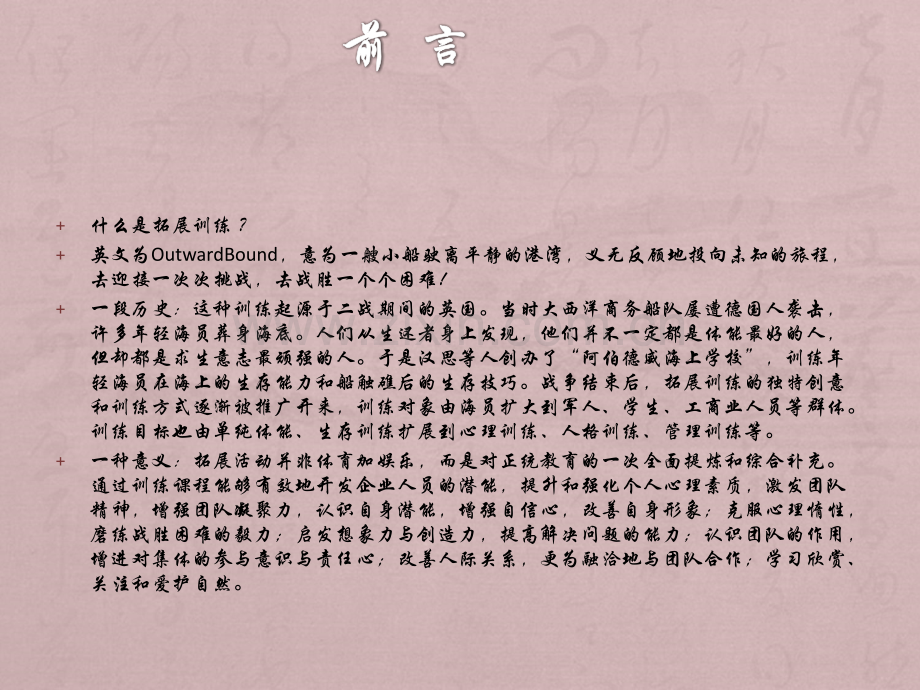 前 言
+ 什么是拓展训练？
+ 英文为OutwardBound，意为一艘小船驶离平静的港湾，义无反顾地投向未知的旅程，
去迎接一次次挑战，去战胜一个个困难！
+ 一段历史：这种训练起源于二战期间的英国。当时大西洋商务船队屡遭德国人袭击，
许多年轻海员葬身海底。人们从生还者身上发现，他们并不一定都是体能最好的人，
但却都是求生意志最顽强的人。于是汉思等人创办了“阿伯德威海上学校”，训练年
轻海员在海上的生存能力和船触难后的生存技巧。战争结束后，拓展训练的独特创意
和训练方式逐渐被推广开来，训练对象由海员扩大到军人、学生、工商业人员等群体。
训练目标也由单纯体能、生存训练扩展到心理训练、人格训练、管理训练等。
+ 一种意义：拓展活动并非体育加娱乐，而是对正统教育的一次全面提炼和综合补充。
通过训练课程能够有效地开发企业人员的潜能，提升和强化个人心理素质，激发团队
精神，增强团队凝聚力，认识自身潜能，增强自信心，改善自身形象；克服心理惰性，
磨练战胜困难的毅力；启发想象力与创造力，提高解决问题的能力；认识团队的作用，
增进对集体的参与意识与责任心；改善人际关系，更为融洽地与团队合作；学习欣赏、
关注和爱护自然。